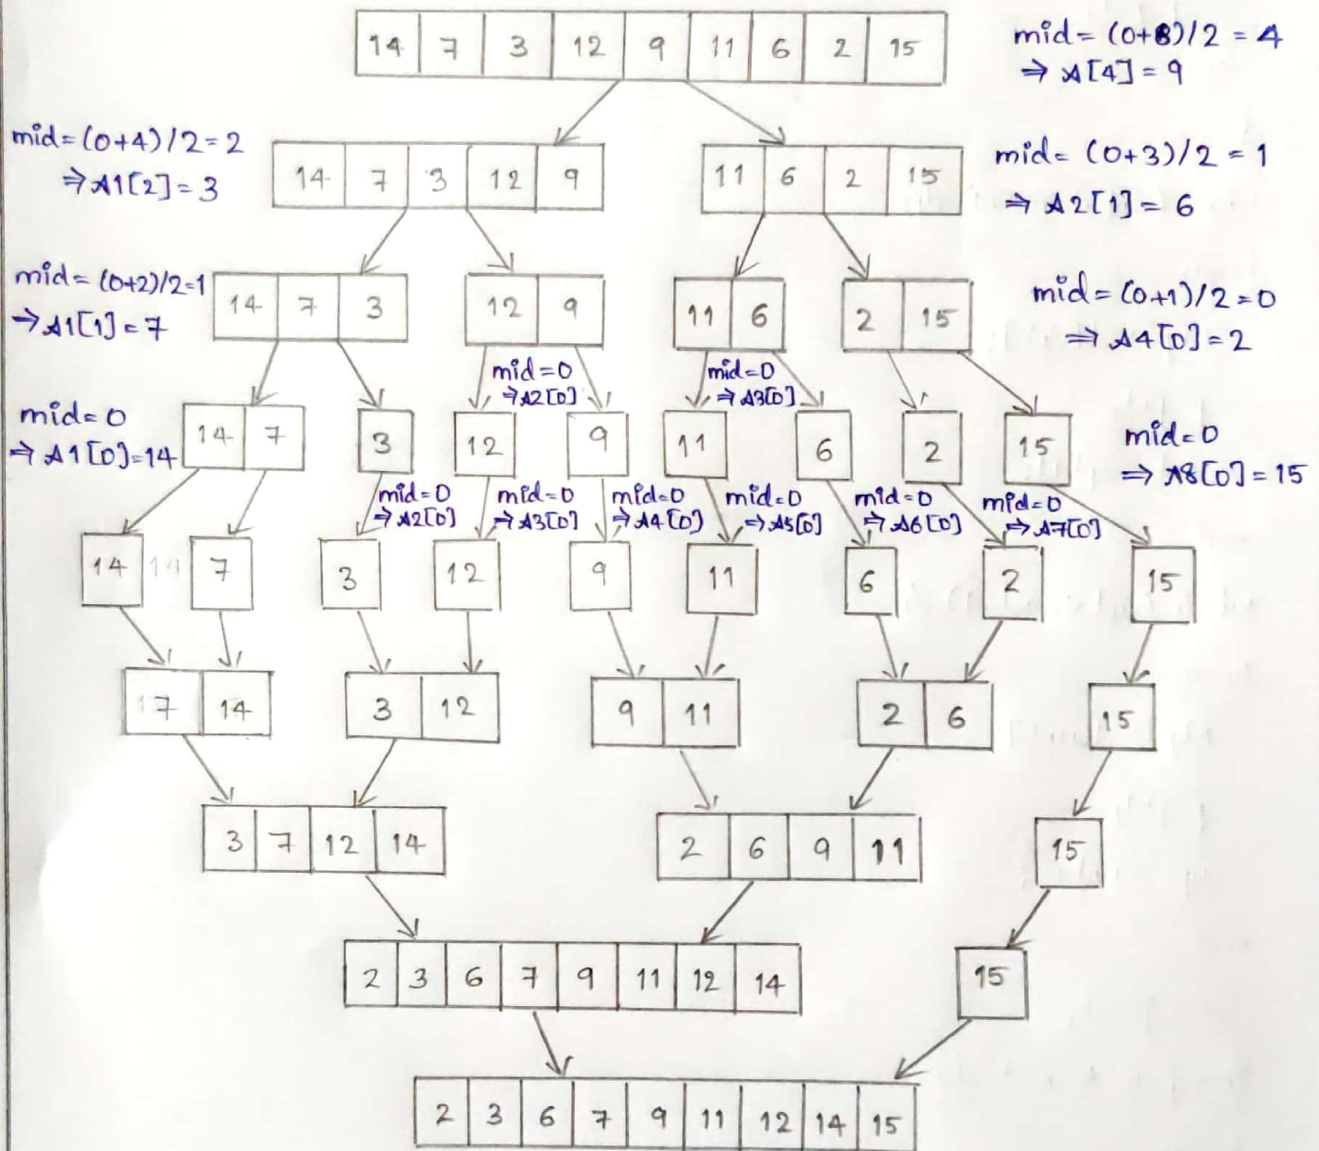 14 7 3 12 9 11 6 2 15
mid= (0+8)/2 = 4
⇒ A[4] = 9
mid= (0+4)/2=2
⇒A1[2]= 3
14 7 3 12 9
11 6 2 15
mid= (0+3)/2 = 1
⇒ A2[1]= 6
mid= (0+2)/2=1
⇒A1[1]= 7
14 7 3
12 9
11 6
2 15
mid= (0+1)/2=0
⇒ A4[0]=2
mid=0
⇒A2[0]
mid=0
⇒A3[0]
mid= 0
⇒ A1[0]=14
14 7
3
12
9
11
6
2
15
mid=0
⇒ A8[0]=15
mid=0
⇒A2[0]
mid=0
⇒A3[0]
mid=0
⇒A4[0]
mid=0
⇒A5[0]
mid=0
⇒A6[0]
mid=0
⇒A7[0]
14
14
7
3
12
9
11
6
2
15
17 14
3 12
9 11
2 6
15
3 7 12 14
2 6 9 11
15
2 3 6 7 9 11 12 14
15
2 3 6 7 9 11 12 14 15